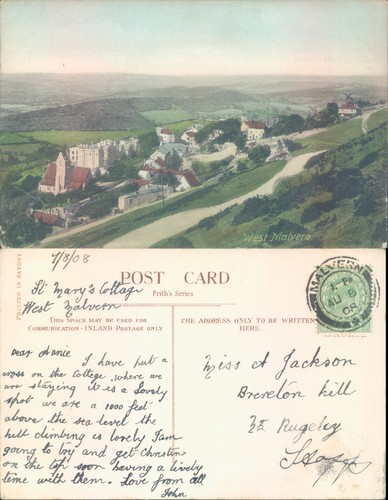 West Malvern.
PRINTED IN SAXONY
7/8/08
St Mary's Cottage
West Malvern
POST CARD
Frith's Series
THIS SPACE MAY BE USED FOR
COMMUNICATION - INLAND POSTAGE ONLY
THE ADDRESS ONLY TO BE WRITTEN
HERE.
MALVERN
AU 8
08
Dear Annie I have put a
cross on the Cottage, where we
are staying it is a Lovely
spot we are a 1000 feet
above the sea level the
hill climbing is lovely I am
going to try and get
on the top soon having a lively
time with them. Love from all
John
Miss A Jackson
Brereton Hill
Nr Rugeley
Staffs